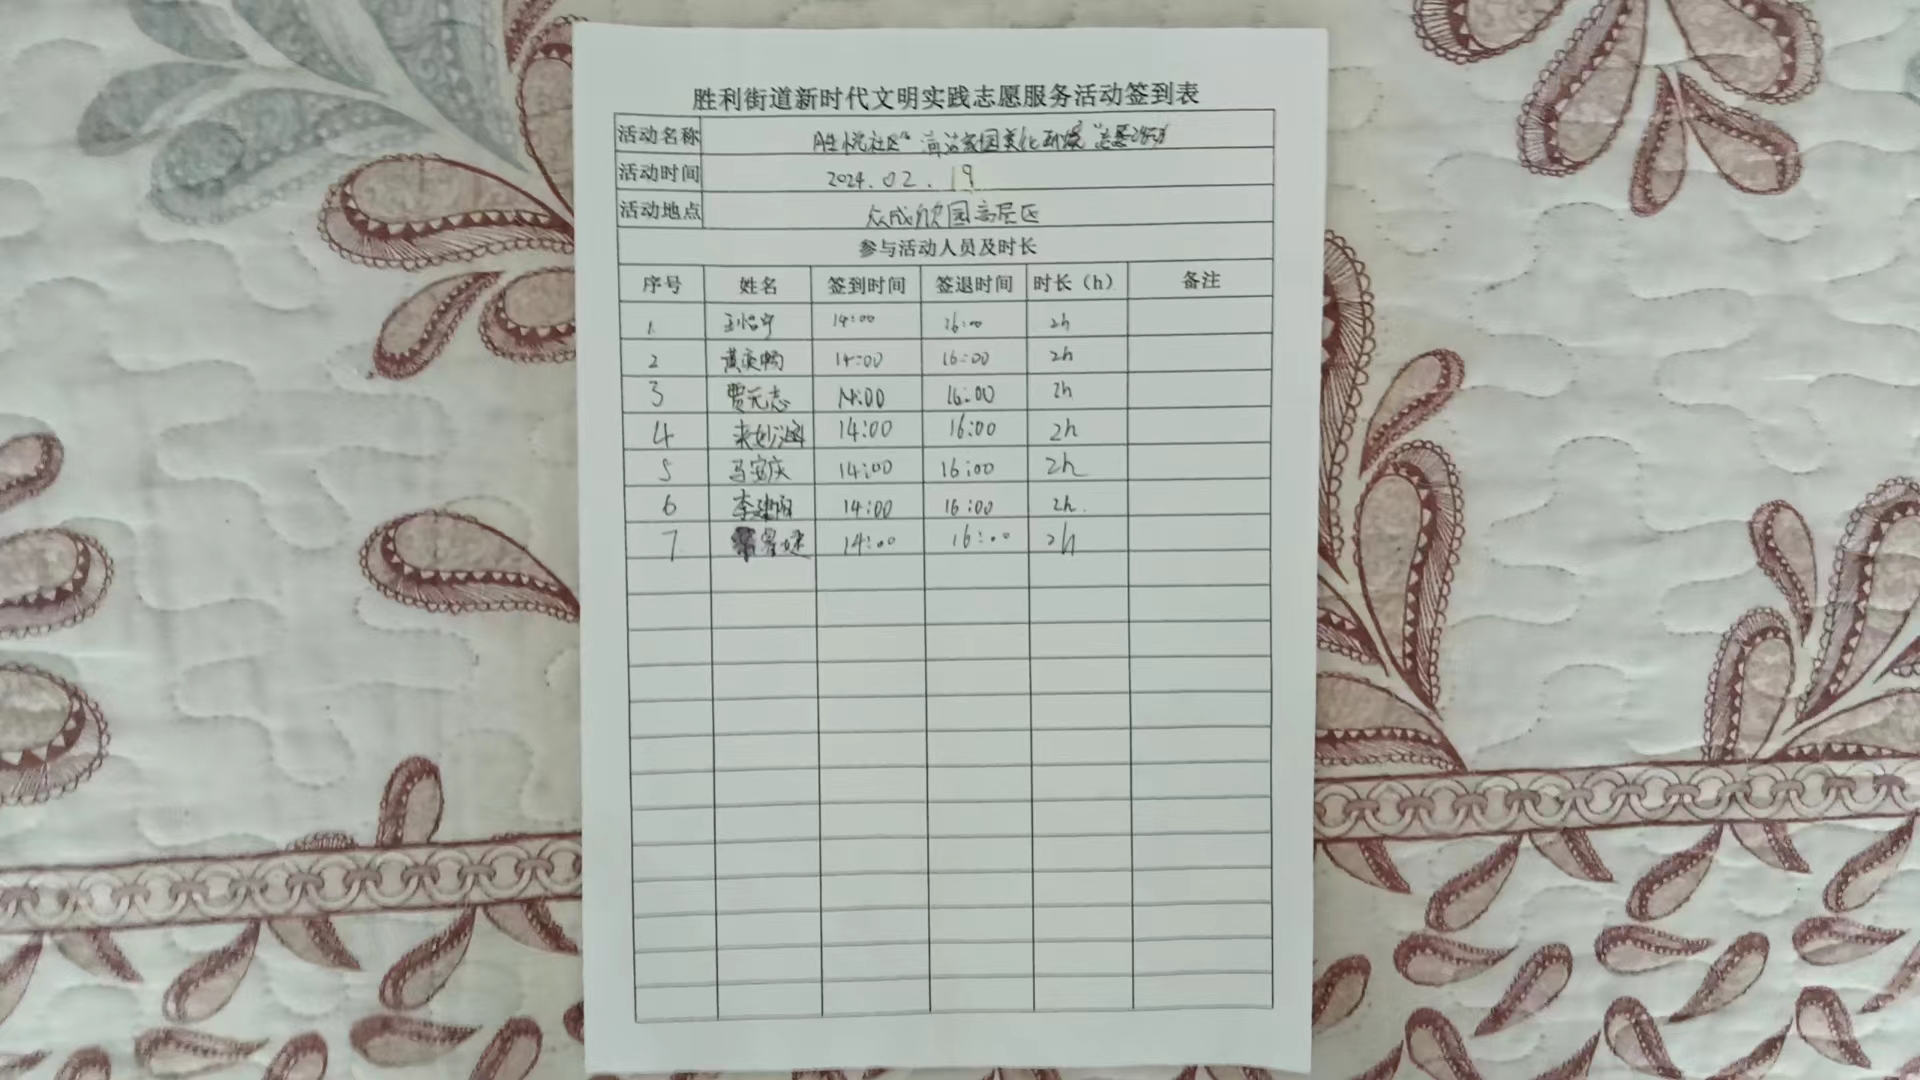 胜利街道新时代文明实践志愿服务活动签到表
活动名称 胜悦社区"清洁家园美化环境"志愿活动
活动时间 2024.02.19
活动地点 众成欣园高层区
参与活动人员及时长
序号 姓名 签到时间 签退时间 时长（h） 备注
1. 王怡宁 14:00 16:00 2h
2 14:00 16:00 2h
3 贾元志 14:00 16:00 2h
4 来妙涵 14:00 16:00 2h
5 马安庆 14:00 16:00 2h
6 李建阳 14:00 16:00 2h.
7 14:00 16:00 2h